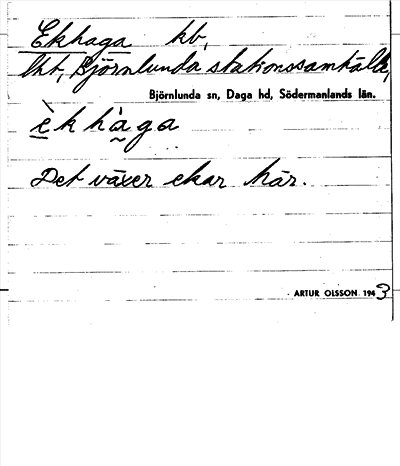 Ekhaga kb,
lht, Björnlunda stationssamhälle,
Björnlunda sn, Daga hd, Södermanlands län.
è k h à g a
Det växer ekar här.
ARTUR OLSSON 1943